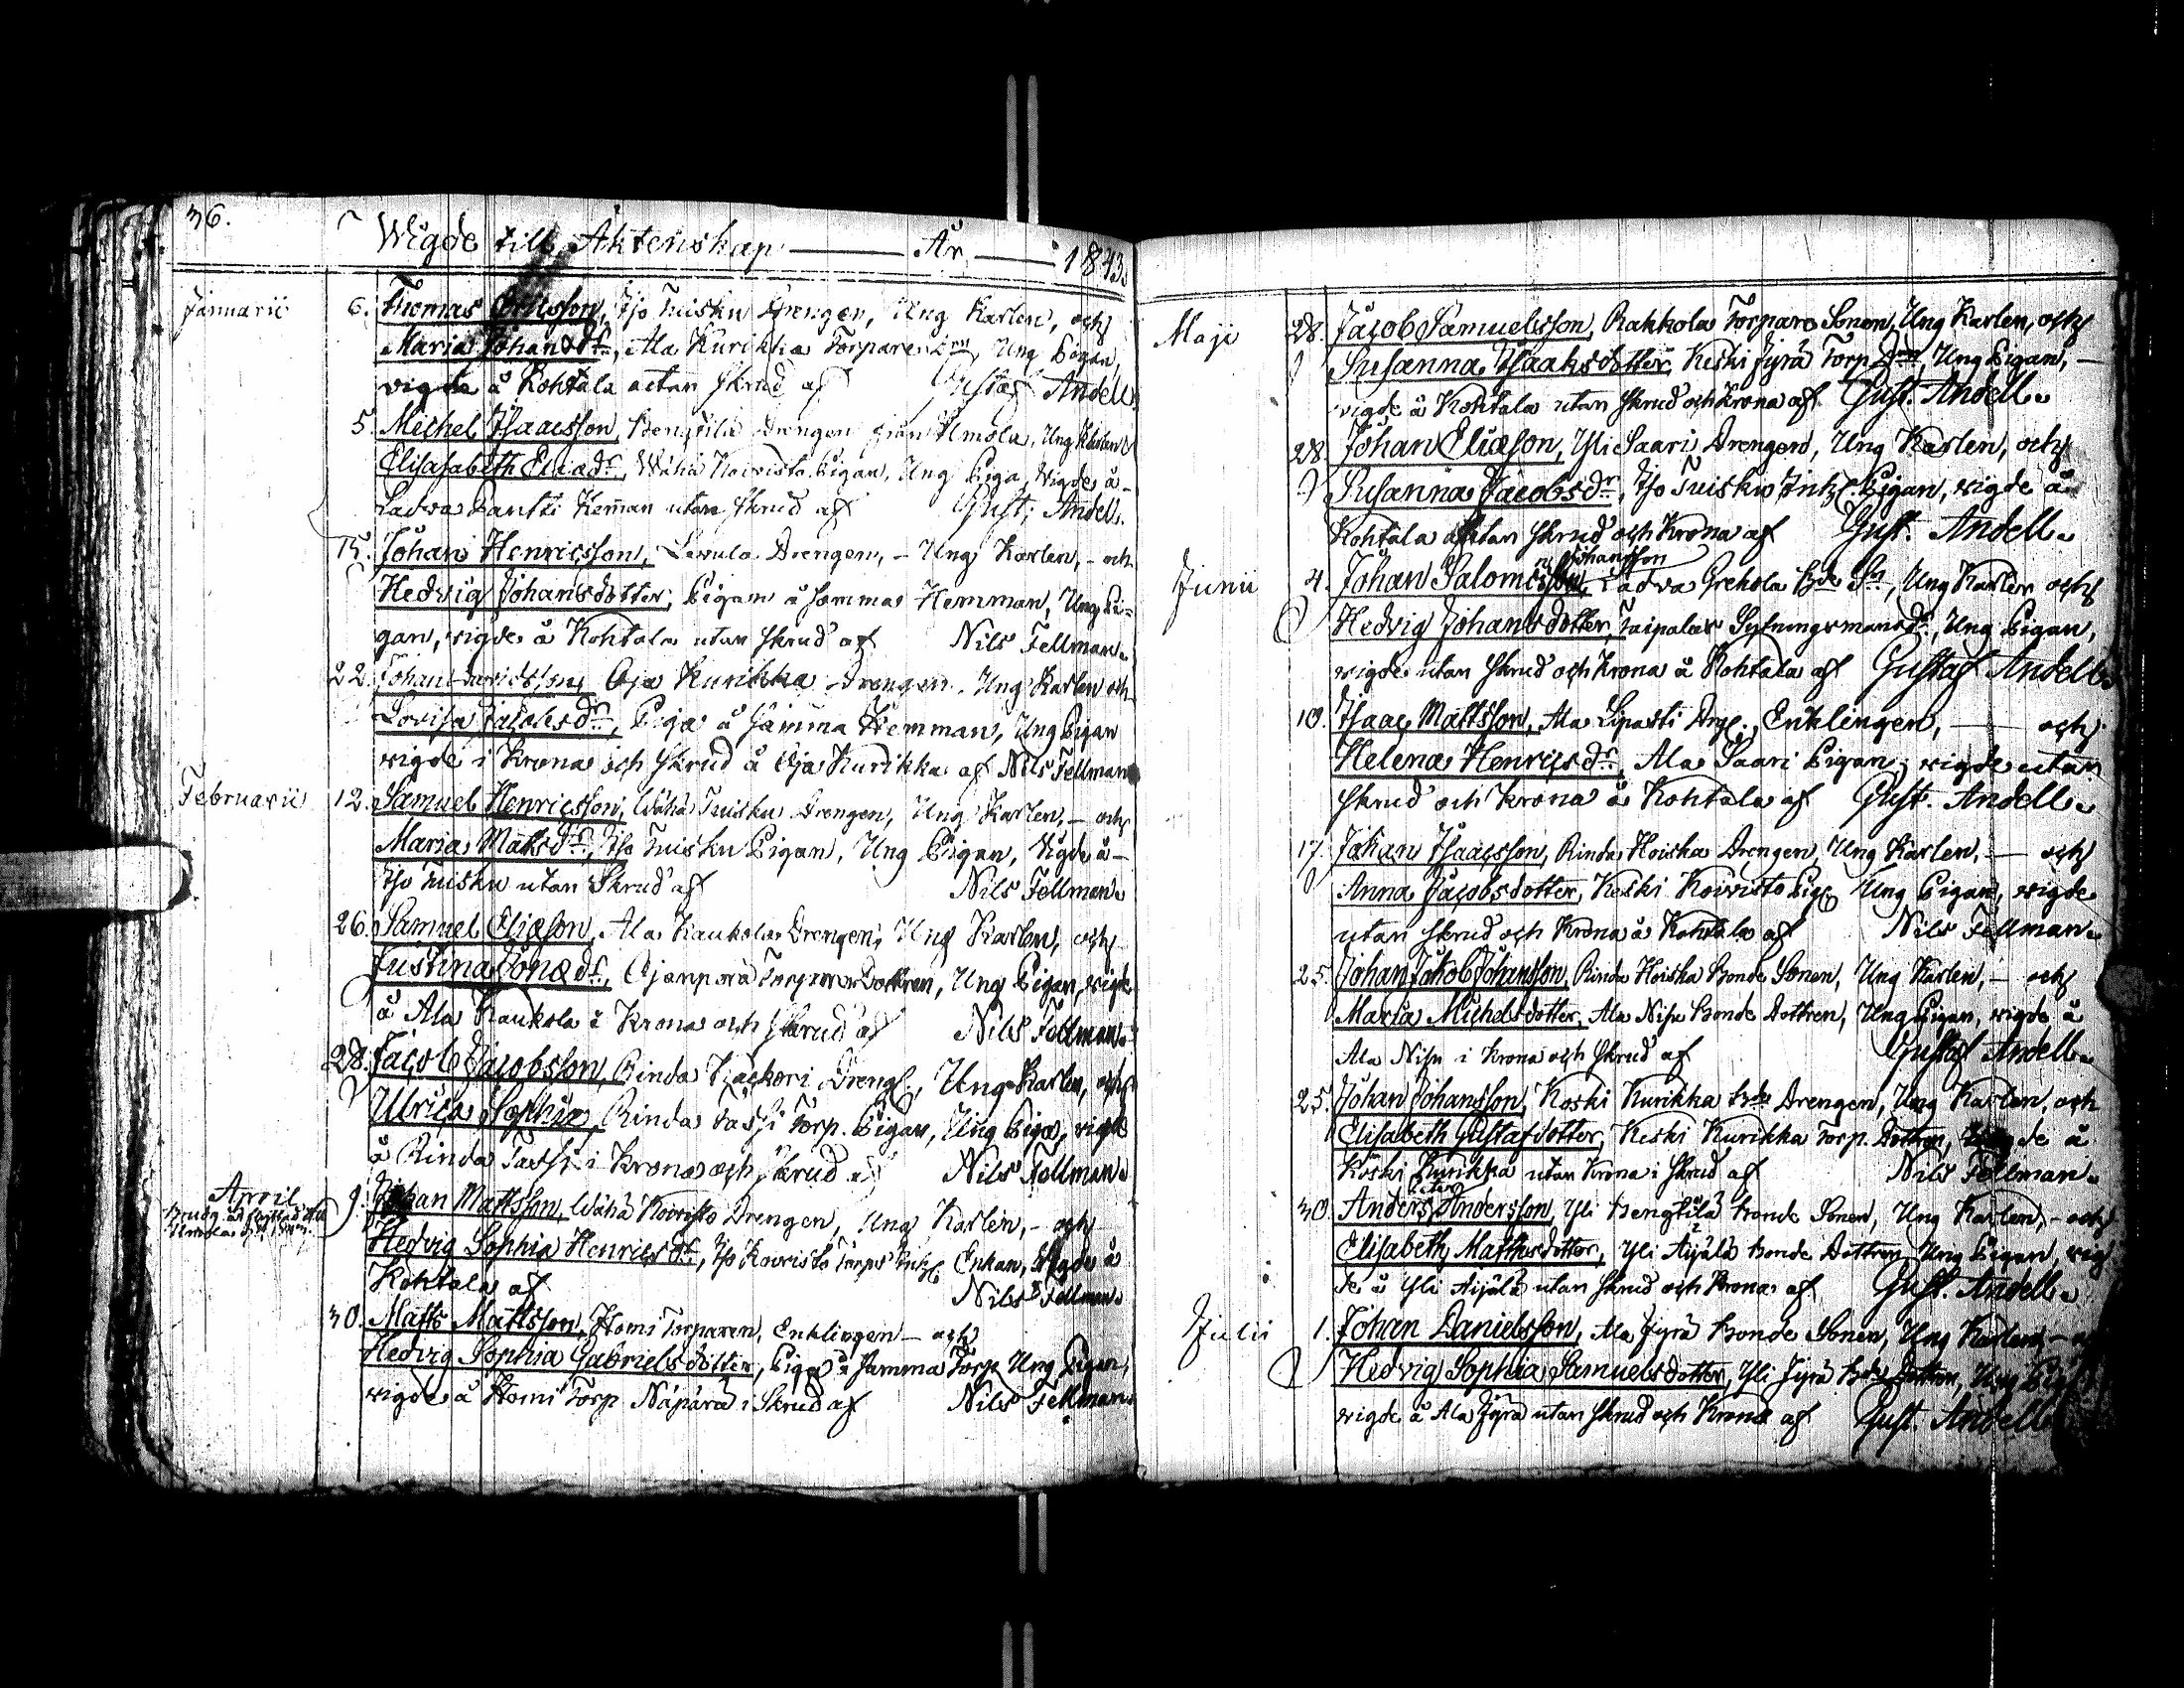 36.
Wigde till Äktenskap År 1843.
Januarii 6. Thomas Ericsson, Iso Tuisku Drengen, Ung Karlen, och
Maria Johansdr, Ala Kurikka Torpare Drn, Ung Pigan,
vigde å Kohtala utan skrud af Gustaf Andell.
5. Michel Isaacsson, Bengtilä Drengen från Ilmola, Ung Karlen &
Elisabeth Eliædr, Wähä Koivisto Pigan, Ung Piga, vigde å
Ladva Pantti Hemman utan skrud af Gust. Andell.
15. Johan Henricsson, Levula Drengen, - Ung Karlen, - och
Hedvig Johansdotter, Pigan å samma Hemman, Ung Pi-
gan, vigde å Kohtala utan skrud af Nils Fellman.
22. Johan Oja Kurikka Drengen, Ung Karlen och
Lovisa Jacobsdr, Piga å samma Hemman, Ung Pigan
vigde i Krona och skrud å Oja Kurikka af Nils Fellman
Februarii 12. Samuel Henricsson, Wähä Tuisku Drengen, Ung Karlen, - och
Maria Matsdr, Iso Tuisku Pigan, Ung Pigan, vigde å -
Iso Tuisku utan Skrud af Nils Fellman.
26. Samuel Eliæson, Ala Kaukola Drengen, Ung Karlen, och
Justina Jonædr, Ojanperä Torpare Dottren, Ung Pigan, vigde
å Ala Kaukola i Krona och skrud af Nils Fellman.
28. Jacob Jacobsson, Rinda Käcköri Dreng, Ung Karlen, och
Ulrica Sophia, Rinda Tassi Torp. Pigan, Ung Piga, vigde
å Rinda Tassi i Krona och skrud af Nils Fellman.
April 9. Johan Mattsson, Wähä Koivisto Drengen, Ung Karlen, - och
Hedvig Sophia Henricsdr, Iso Koivisto Torps Enkan, vigde å
Kohtala af Nils Fellman.
30. Matts Mattsson, Homi Torparen, Enklingen - och
Hedvig Sophia Gabrielsdotter, Piga å samma Torp, Ung Pigan,
vigde å Homi Torp Näpärä i Skrud af Nils Fellman
Maji 28. Jacob Samuelsson, Rakkola Torpare Sonen, Ung Karlen, och
Susanna Isaaksdotter, Keski Jyrä Torp Drn, Ung Pigan, -
vigde å Kohtala utan skrud och Krona af Gust. Andell.
28 Johan Eliæson, Yli Saari Drengen, Ung Karlen, och
Susanna Jacobsdr, Iso Tuisku Inhs. Pigan, vigde å
Kohtala utan skrud och Krona af Gust. Andell.
Johansson
Junii 4. Johan Salomonsson, Ladva Grekola Bde Sn, Ung Karlen och
Hedvig Johansdotter, Taipalas Sytningsmansdr, Ung Pigan,
vigde utan skrud och Krona å Kohtala af Gustaf Andell
10. Isaac Mattsson, Ala Lipasti Drg., Enklingen, och
Helena Henricsdr, Ala Saari Pigan, vigde utan
skrud och Krona å Kohtala af Gust. Andell.
17. Johan Isaacsson, Rinda Hoiska Drengen, Ung Karlen, - och
Anna Jacobsdotter, Keski Koivisto Pig, Ung Pigan, vigde
utan skrud och Krona å Kohtala af Nils Fellman.
25. Johan Jakob Johansson, Rinda Hoiska Bonde Sonen, Ung Karlen, - och
Maria Michelsdotter, Ala Nisu Bonde Dottren, Ung Pigan, vigde å
Ala Nisu i Krona och skrud af Gustaf Andell.
25. Johan Johansson, Koski Kurikka Bde Drengen, Ung Karlen, och
Elisabeth Gustafsdotter, Keski Kurikka Torp. Dottren, de å
Koski Kurikka utan Krona i skrud af Nils Fellman.
30. Anders Andersson, Yli Bengtilä Bonde Sonen, Ung Karlen, - och
Elisabeth Mattsdotter, Yli Äijälä Bonde Dottren, Ung Pigan, vig
de å Yli Äijälä utan skrud och Krona af Gust. Andell.
Julii 1. Johan Danielsson, Ala Jyrä Bonde Sonen, Ung Karlen, -
Hedvig Sophia Samuelsdotter, Yli Jyrä Bde Dottren, Ung
vigde å Ala Jyrä utan skrud och Krona af Gust. Andell